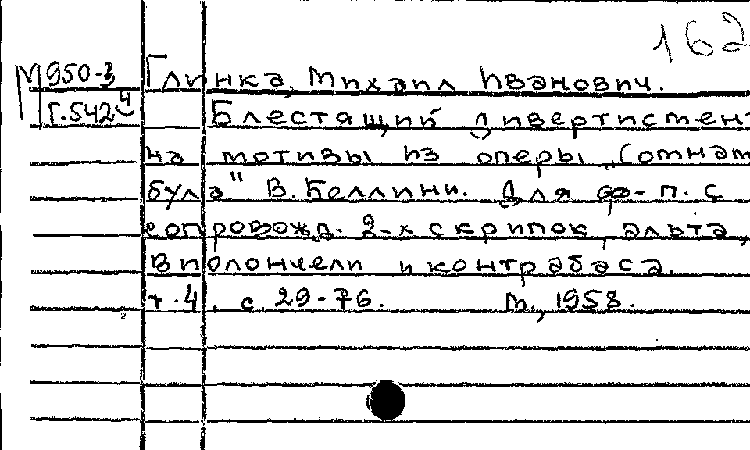 162
М950-3 Глинка, Михаил Иванович.
Г.542 4 Блестящий дивертисмент
на мотивы из оперы „Сомнам
була" В. Беллини. Для ф-п. с
сопровожд. 2-х скрипок, альта,
виолончели и контрабаса.
т.4, с 29-76. М., 1958.